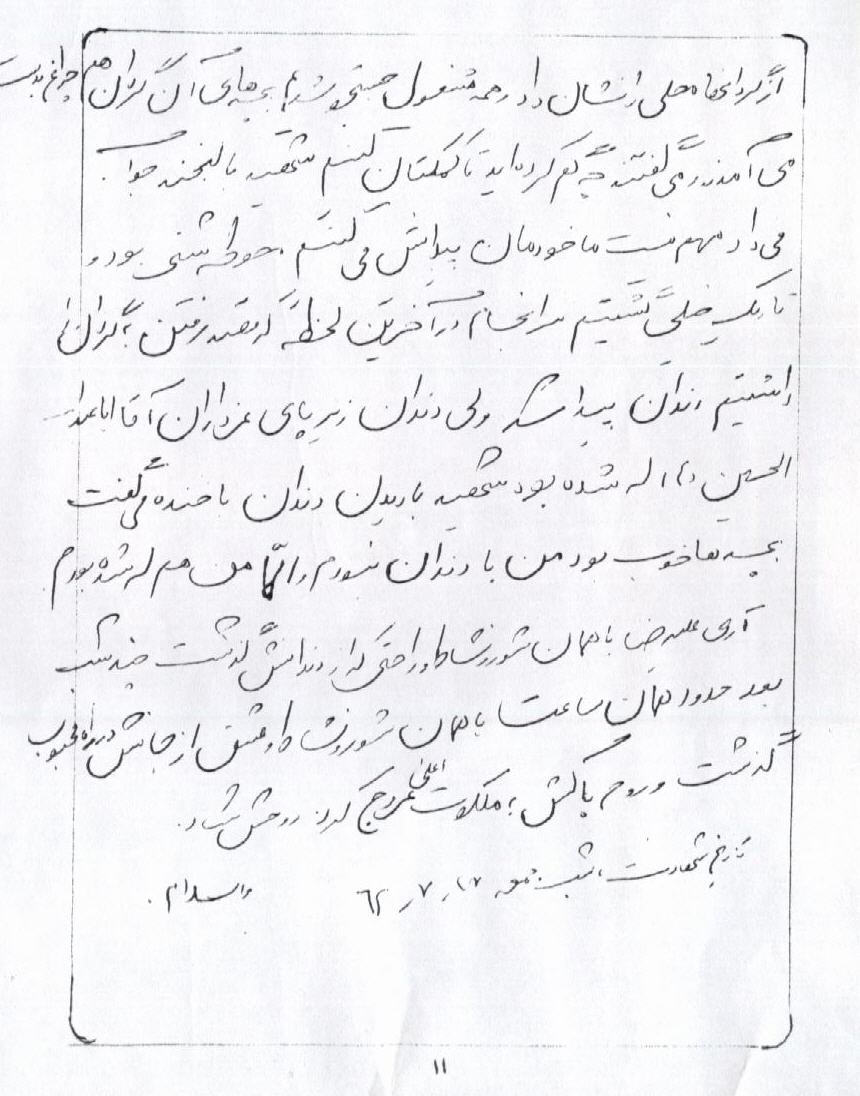 از گردانها محلی را نشان داد و همه مشغول جستجو شدند بچه‌های آن گردان هم چراغ بدست
می آمدند و می گفتند چه گم کرده اید تا کمکتان کنیم شهید با لبخند جواب
می داد مهم نیست ما خودمان پیدایش می کنیم محوطه شنی بود و
تاریک خیلی گشتیم سرانجام در آخرین لحظه که قصد رفتن به گردان را
داشتیم دندان پیدا شد ولی دندان زیر پای عزاداران آقا اباعبدا...
الحسین (ع) له شده بود شهید با دیدن دندان با خنده می گفت
بچه ها خوب بود من با دندان نبودم والا من هم له شده بودم
آری علیرضا با همان شور و نشاط و راحتی که از دندانش گذشت چند شب
بعد حدود همان ساعت با همان شور و نشاط و عشق از جانش در راه محبوب
گذشت و روح پاکش به ملکوت اعلی عروج کرد. روحش شاد.
تاریخ شهادت، شب جمعه ۶۲٫۷٫ والسلام.
۱۱